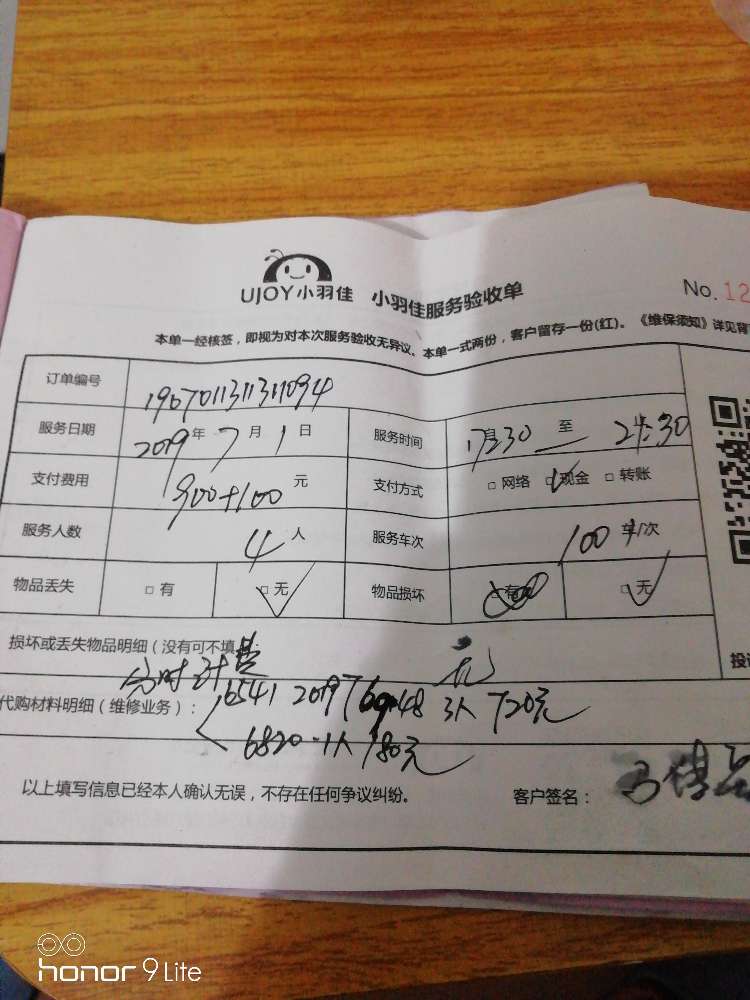 UJOY小羽佳 小羽佳服务验收单 No. 12
本单一经核签，即视为对本次服务验收无异议。本单一式两份，客户留存一份(红)。《维保须知》详见背
订单编号 1907011311311094
服务日期 2019年7月1日 服务时间 17:30 至 21:30
支付费用 900+100元 支付方式 □ 网络 □ 现金 □ 转账
服务人数 4人 服务车次 100 车/次
物品丢失 □ 有 □ 无 物品损坏 □ 有 □ 无
损坏或丢失物品明细（没有可不填
分时计费 无
代购材料明细（维修业务）： 6541 2019 3人 720元
6820·1人 180元
以上填写信息已经本人确认无误，不存在任何争议纠纷。 客户签名：
投
honor 9 Lite